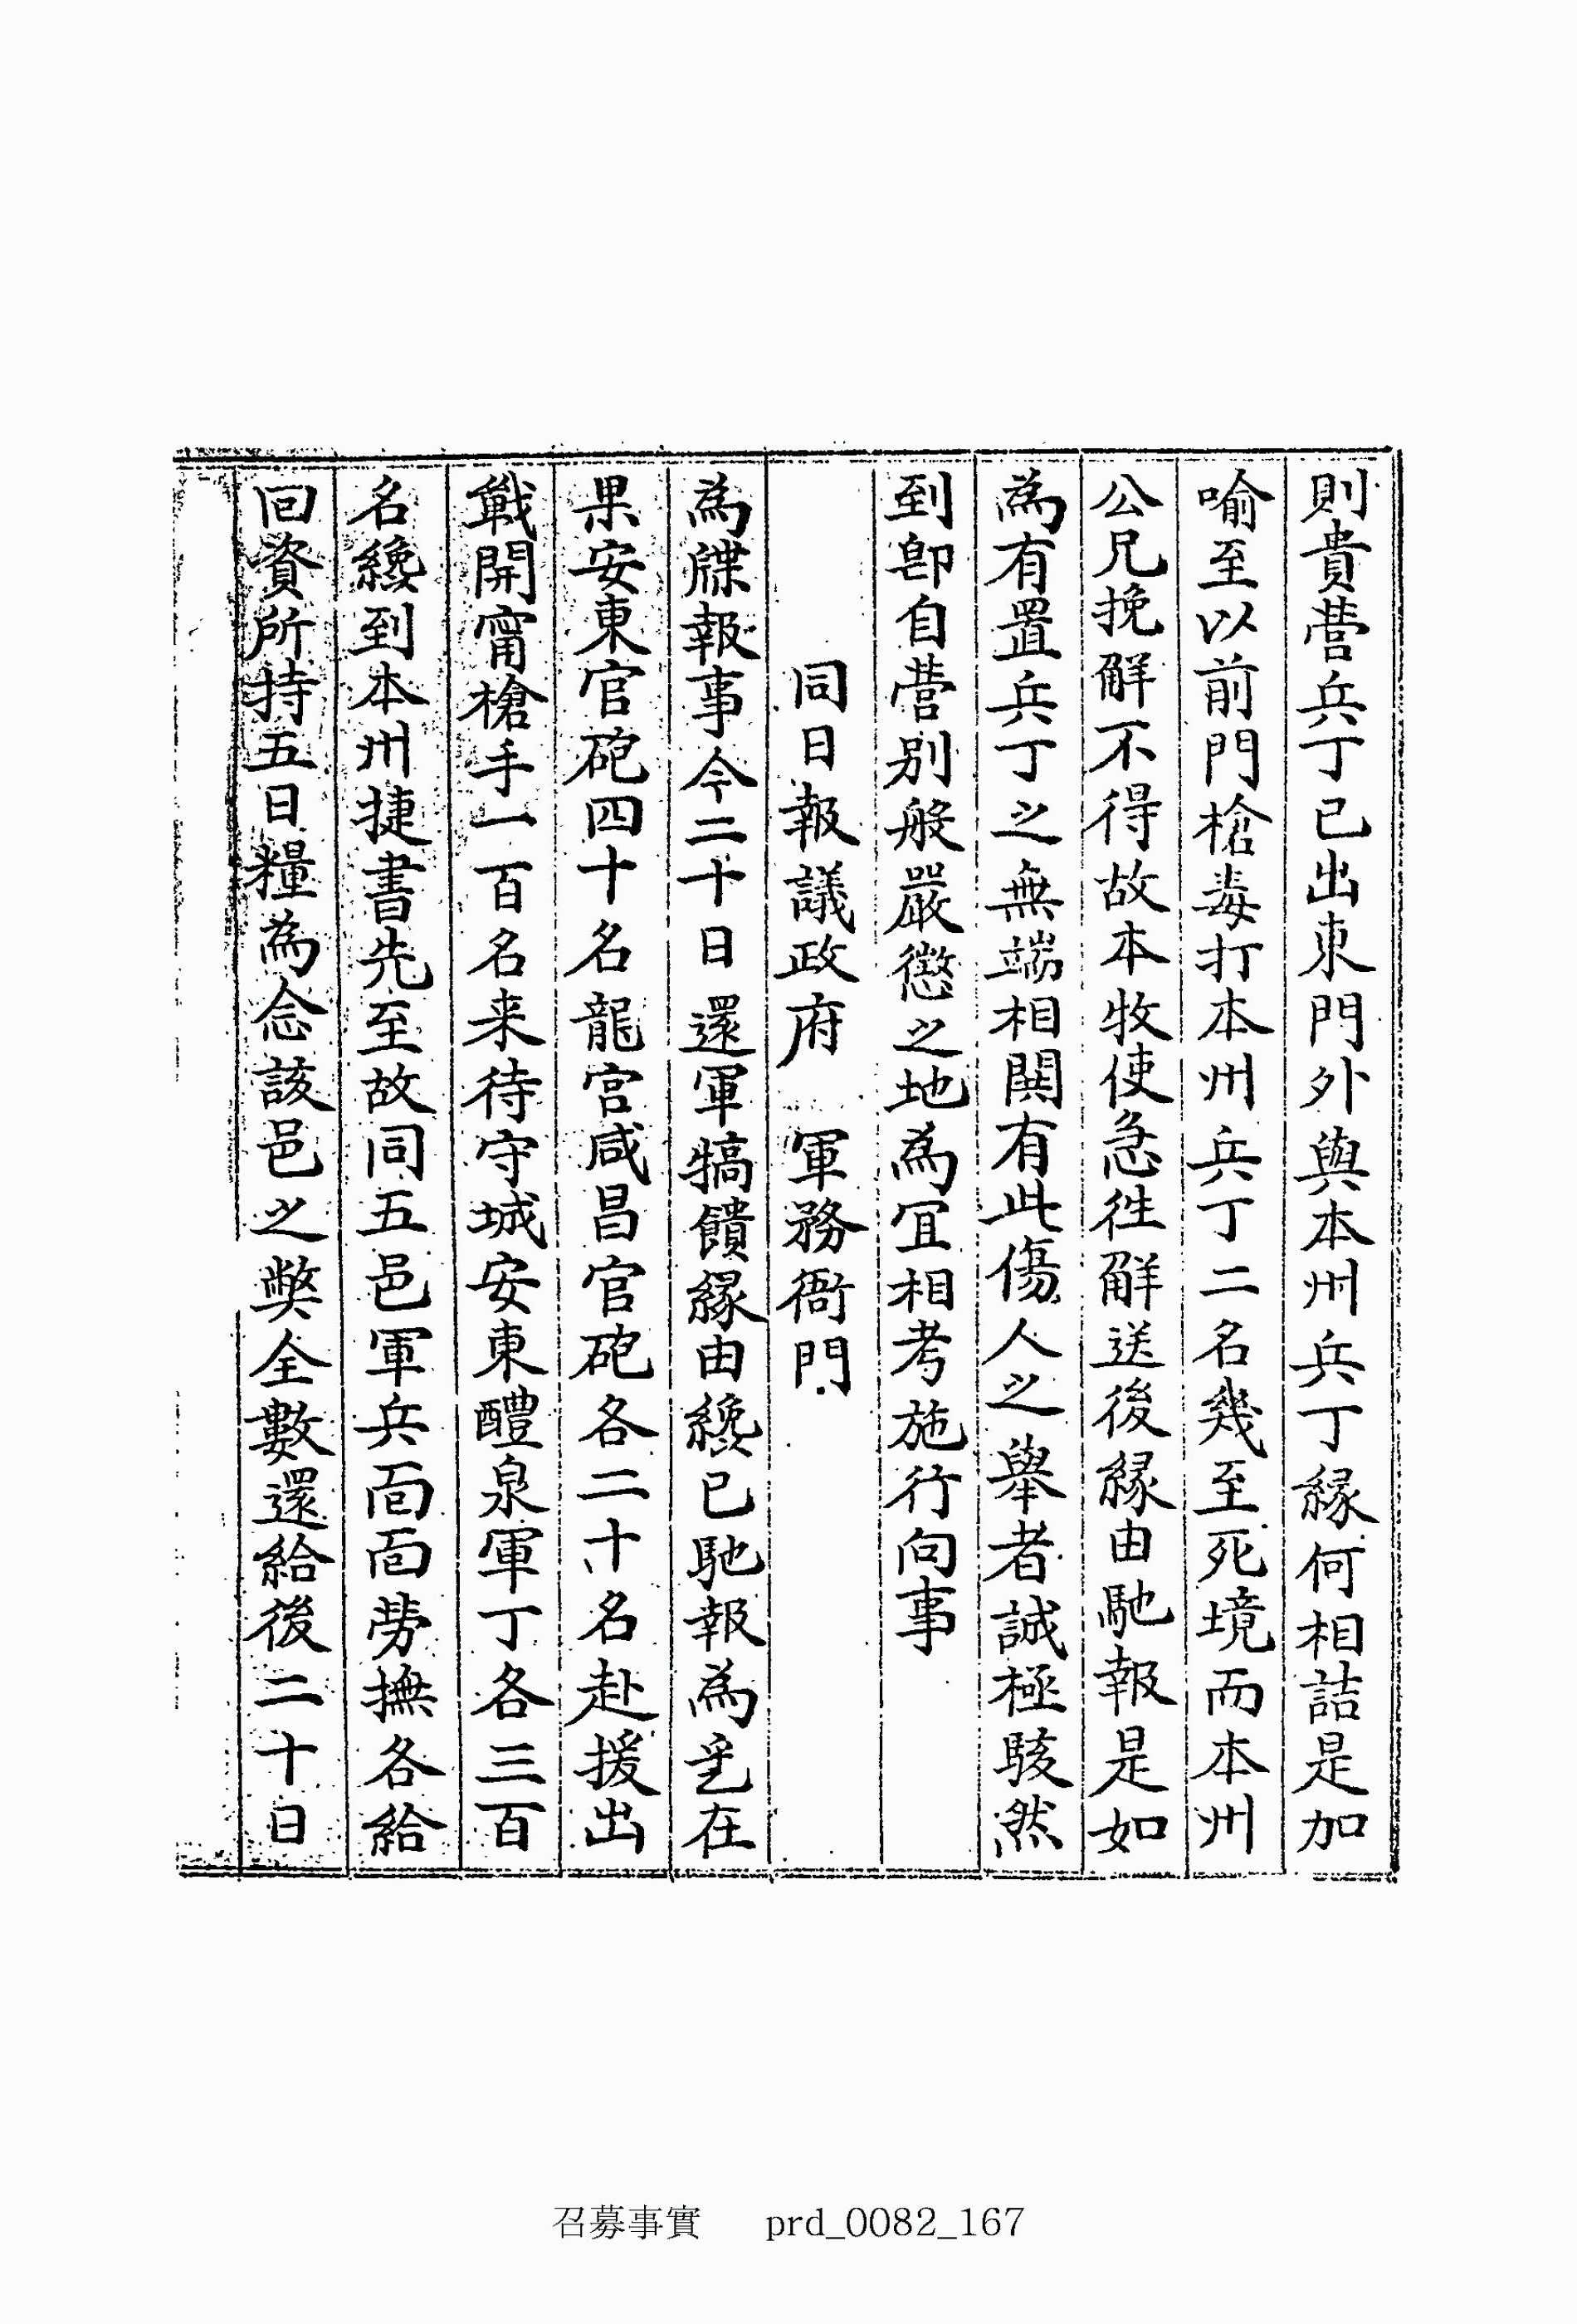 則貴營兵丁已出東門外與本州兵丁緣何相詰是加
喻至以前門槍毒打本州兵丁二名幾至死境而本州
公兄挽解不得故本牧使急往解送後緣由馳報是如
為有置兵丁之無端相関有此傷人之擧者誠極駭然
到卽自營別般嚴懲之地為宜相考施行向事
同日報議政府 軍務衙門
為牒報事今二十日還軍犒饋緣由纔已馳報為乭在
果安東官砲四十名龍宮咸昌官砲各二十名赴援出
戰開甯槍手一百名来待守城安東醴泉軍丁各三百
名纔到本州捷書先至故同五邑軍兵面面勞撫各給
回資所持五日糧為念該邑之獘全數還給後二十日
召募事實 prd_0082_167